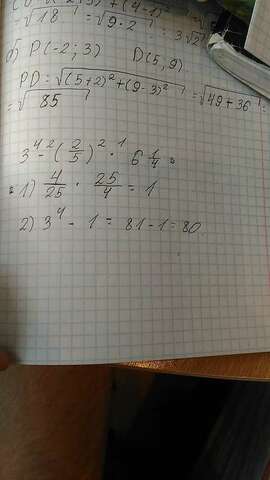 = √18 = √9·2 = 3√2
б) P(-2; 3) D(5, 9)
PD = √(5+2)² + (9-3)² = √49 + 36 =
= √85
3⁴ ² - (2/5)² · ¹ 6 1/4 =
1) 4/25 · 25/4 = 1
2) 3⁴ - 1 = 81 - 1 = 80